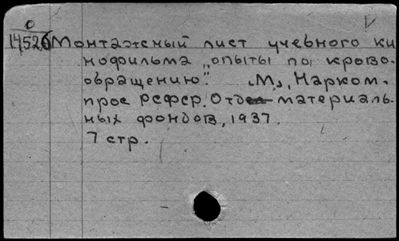 0
14526 Монтажный лист учебного ки
нофильма „опыты по крово-
обращению". М., Нарком.
прос РСФСР. Отдел материаль-
ных фондов, 1937.
7 стр.